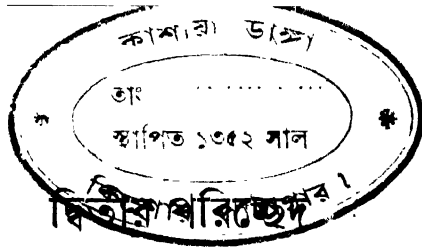 কাশিয়া ডাঙ্গা
তাং ..........
স্থাপিত ১৩৫২ সাল
দ্বিতীয় পরিচ্ছেদ